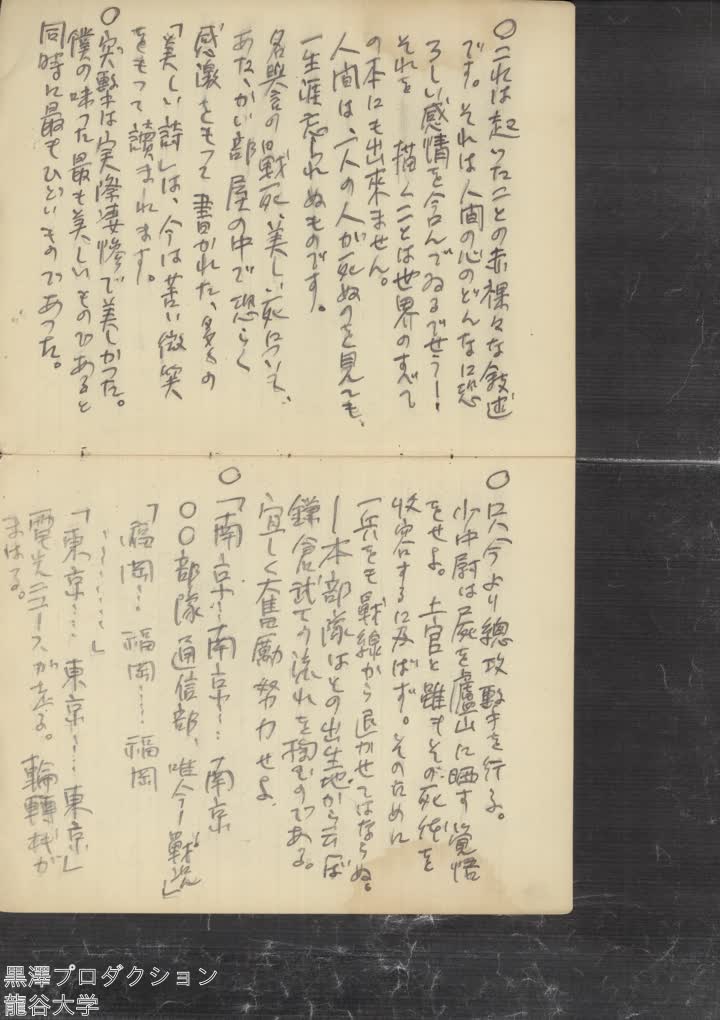 ○これは起ったことの赤裸々な叙述
です。それは人間の心のどんなに恐
ろしい感情を含んでゐるでせう！
それを描くことは世界のすべて
の本にも出来ません。
人間は、一人の人が死ぬのを見ても、
一生涯忘られぬものです。
名誉の戦死、美しい死について、
あたゝかい部屋の中で恐らく
感激をもって書かれた、多くの
「美しい詩」は、今は苦い微笑
をもって讀まれます。
○突撃は実際凄惨で美しかった。
僕の味った最も美しいものであると
同時に最もひどいものであった。
○只今より總攻撃を行る。
少中尉は屍を廬山に晒す覚悟
をせよ。士官と雖もその死体を
收容するに及ばず。そのために
一兵をも戰線から退かせてはならぬ。
本部隊はその出生地から云へば
鎌倉武士の流れを掬むのである。
宜しく奮励努力せよ
○「南京…南京…南京
○○部隊通信部、唯今戰況」
「福岡…福岡…福岡
…………」
「東京…東京…東京」
電光ニュースが走る。輪轉機が
まはる。
黒澤プロダクション
龍谷大学